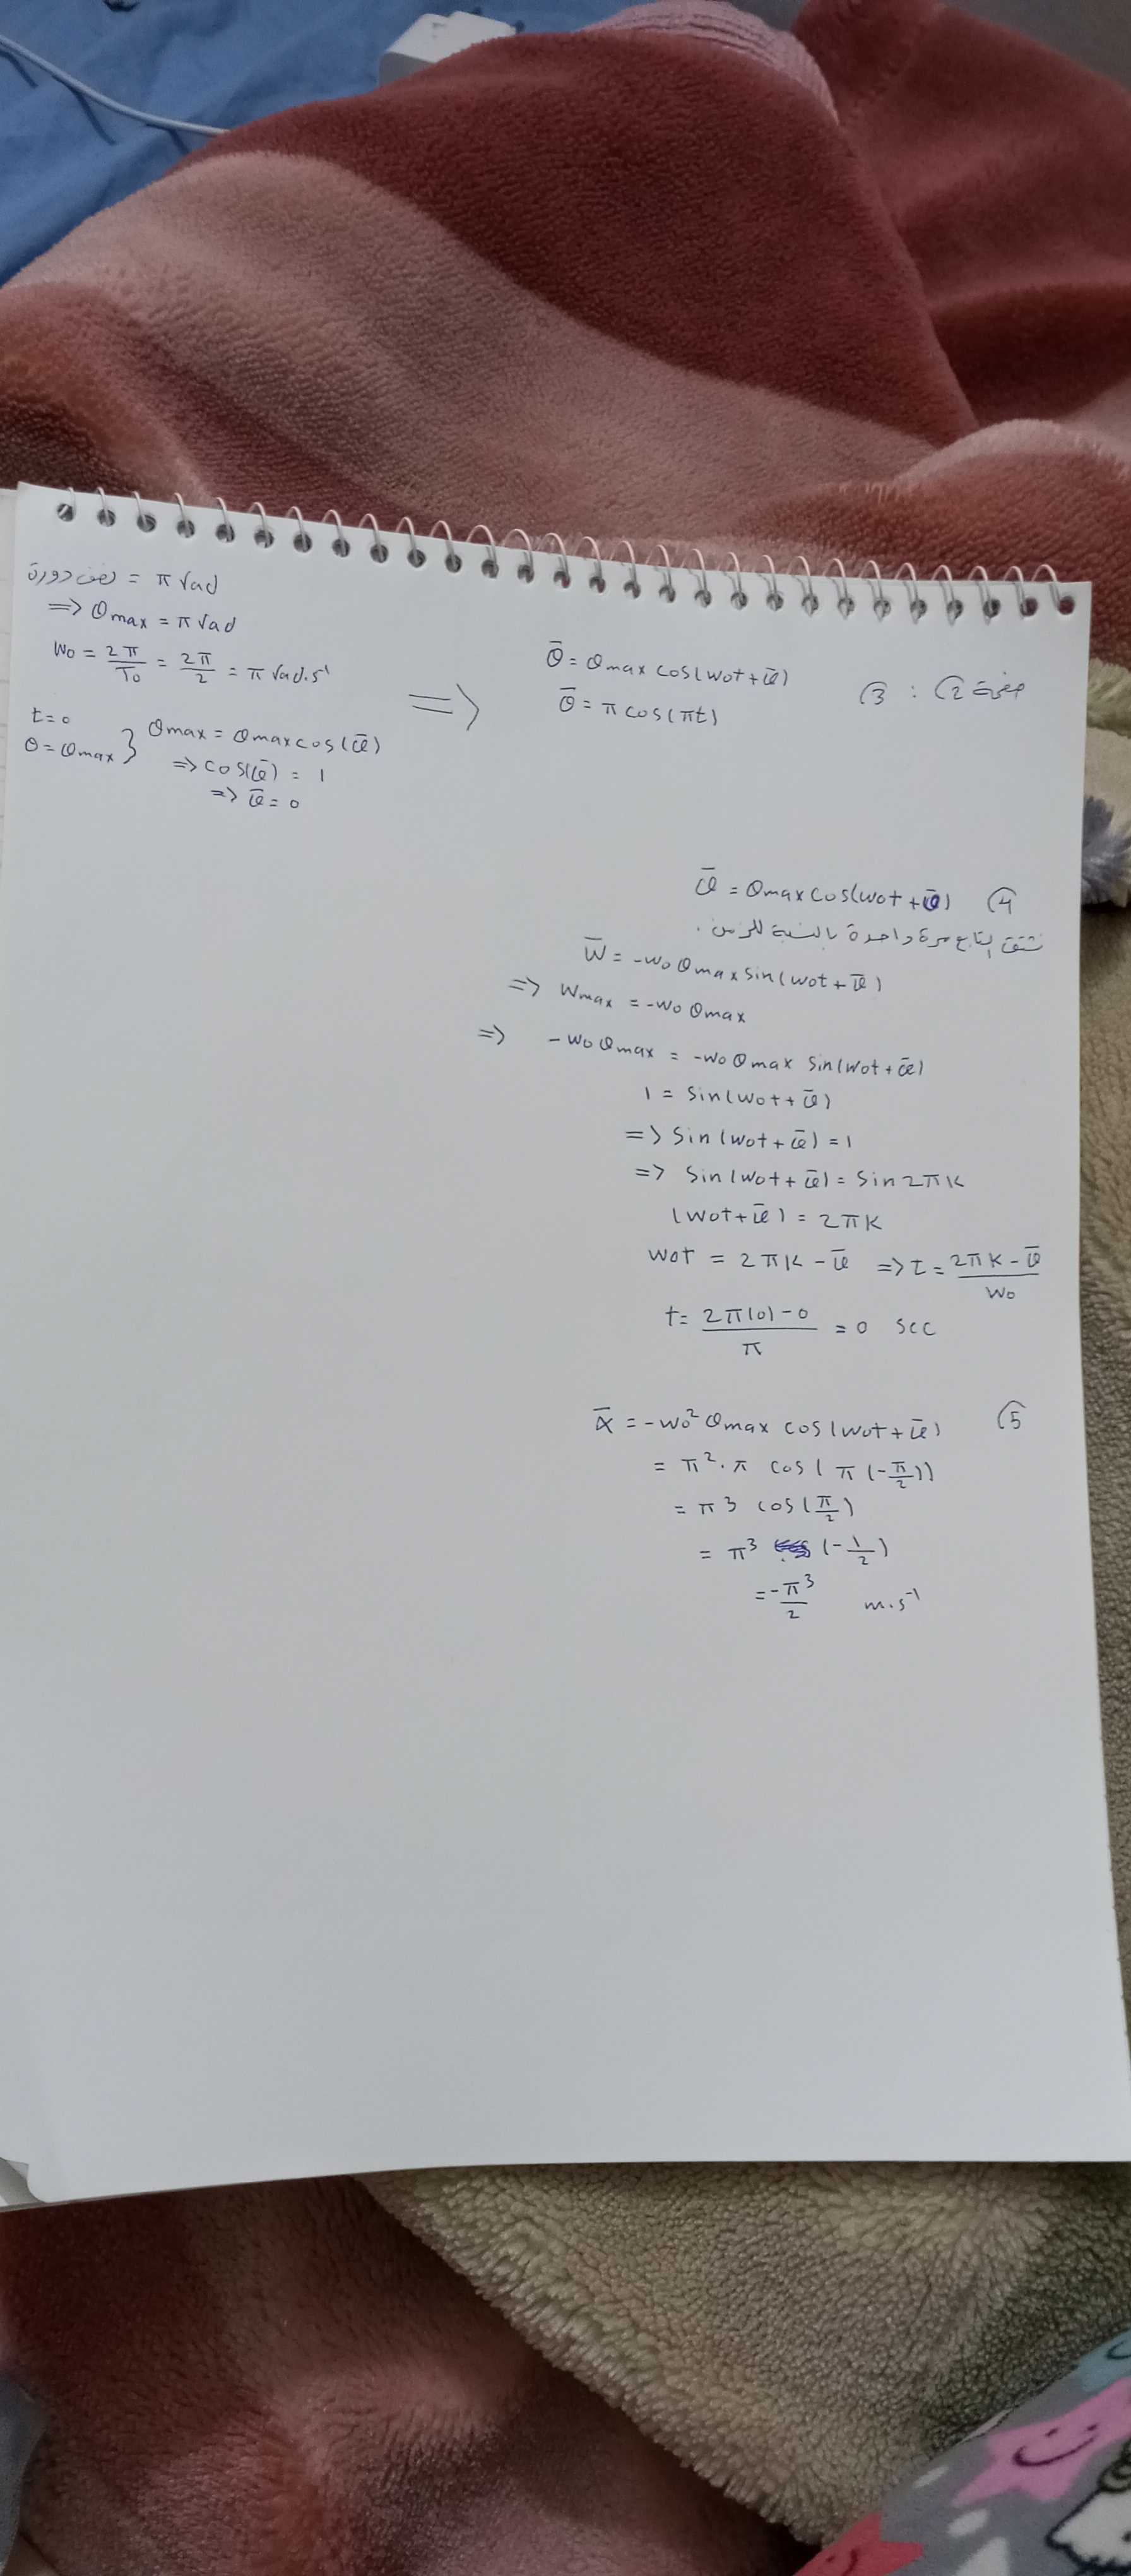 نصف دورة = π rad
=> θmax = π rad
w₀ = 2π/T₀ = 2π/2 = π rad.s⁻¹
t=0
θ=θmax } θmax = θmax cos(φ̄)
=> cos(φ̄) = 1
=> φ̄ = 0
=>
3 : 2
θ̄ = θmax cos(w₀t+φ̄)
θ̄ = π cos(πt)
4
φ̄ = θmax cos(w₀t+φ̄)
نشتق التابع مرة واحدة بالنسبة للزمن .
w̄ = -w₀ θmax sin(w₀t+φ̄)
=> wmax = -w₀ θmax
=> -w₀ θmax = -w₀ θmax sin(w₀t+φ̄)
1 = sin(w₀t+φ̄)
=> sin(w₀t+φ̄) = 1
=> sin(w₀t+φ̄) = sin 2πK
(w₀t+φ̄) = 2πK
w₀t = 2πK - φ̄ => t = (2πK - φ̄)/w₀
t = (2π(0)-0)/π = 0 sec
5
α̅ = -w₀² θmax cos(w₀t+φ̄)
= π².π cos(π(-π/2))
= π³ cos(π/2)
= π³ (-1/2)
= -π³/2 m.s⁻¹